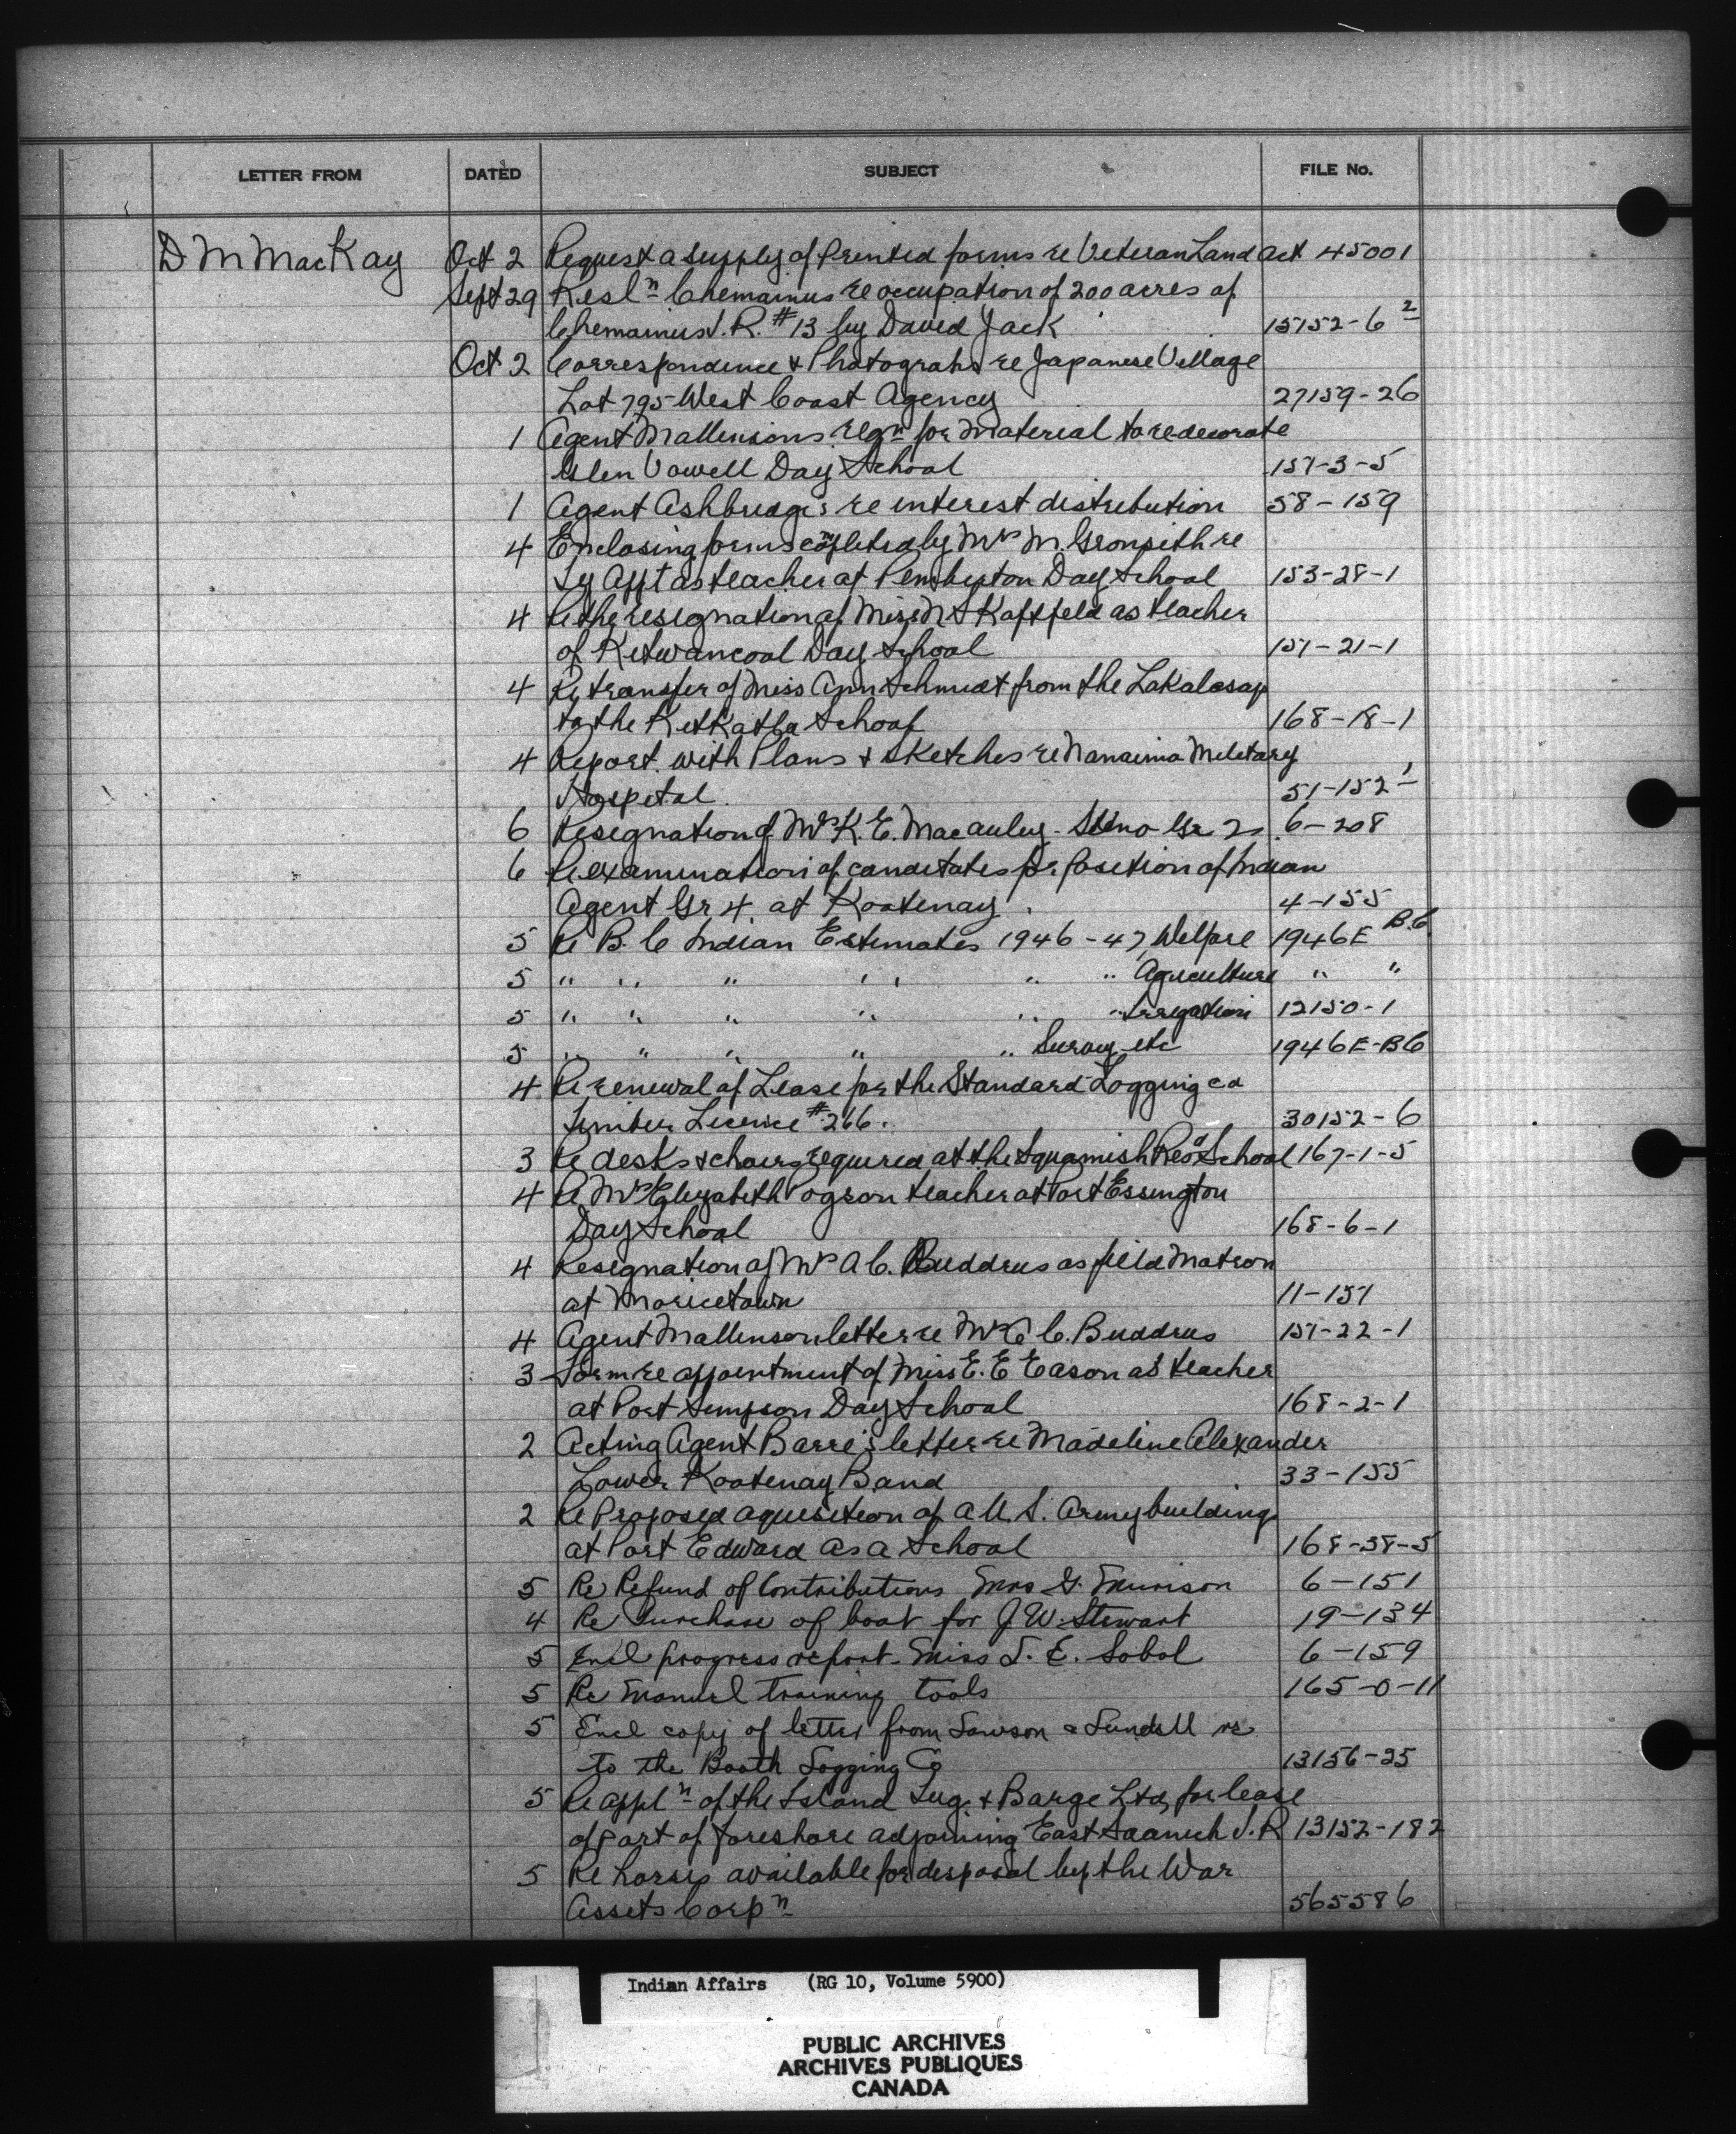 LETTER FROM DATED SUBJECT FILE No.
D M MacKay Oct 2 Request a supply of Printed forms re Veteran Land Act 45001
Sept 29 Resln Chemainus re occupation of 200 acres of
Chemainus I.R. #13 by David Jack 15152-6 2
Oct 2 Correspondence & Photograhs re Japanese Village
Lot 795 West Coast Agency 27159-26
1 Agent Mallinsons reqn for Material to redecorate
Glen Vowell Day School 151-3-5
1 Agent Ashbridge's re interest distribution 58-159
4 Enclosing forms completed by Mrs M. re
Ty Appt as teacher at Pemberton Day School 153-28-1
4 Re the resignation of Miss as teacher
of Kitwancool Day School 151-21-1
4 Re transfer of Miss Ann Schmidt from the Lakalasap
to the Kitkatla School 168-18-1
4 Report with Plans & Sketches re Nanaimo Military
Hospital 51-152-1
6 Resignation of Mrs K. E. Macauley - Steno Gr 2 6-208
6 Re examination of canditates for Position of Indian
Agent Gr 4 at Kootenay. 4-155
5 Re B.C Indian Estimates 1946-47 Welfare 1946E B.C.
5 " " " " " " Agriculture " "
5 " " " " " " Irrigation 12150-1
5 " " " " " Survey etc 1946E-BC
4 Re renewal of Lease for the Standard Logging co
Timber Licence #266. 30152-6
3 Re desks & chairs required at the Squamish Resd School 167-1-5
4 Re Mrs Elizabeth Pogson teacher at Port Essington
Day School 168-6-1
4 Resignation of Mrs A C. Buddrus as field Matron
at Moricetown 11-151
4 Agent Mallinson letter re Mrs C. Buddrus 151-22-1
3 Form re appointment of Miss E. E Eason as teacher
at Port Simpson Day School 168-2-1
2 Acting Agent Barre's letter re Madeline Alexander
Lower Kootenay Band 33-155
2 Re Proposed aquisition of a U.S. Army building
at Port Edward as a School 168-38-5
5 Re Refund of Contributions Mrs G. Munison 6-151
4 Re Purchase of boat for J W. Stewart 19-134
5 Encl progress report - Miss S. E. Sobol 6-159
5 Re Manual training tools 165-0-11
5 Encl copy of letter from Lawson & Lundell re
to the Booth Logging Co 13156-25
5 Re appln of the Island Tug & Barge Ltd, for lease
of part of foreshore adjoining East Saanich I.R 13152-182
5 Re horses available for disposal by the War
Assets Corpn 565586
Indian Affairs (RG 10, Volume 5900)
PUBLIC ARCHIVES
ARCHIVES PUBLIQUES
CANADA